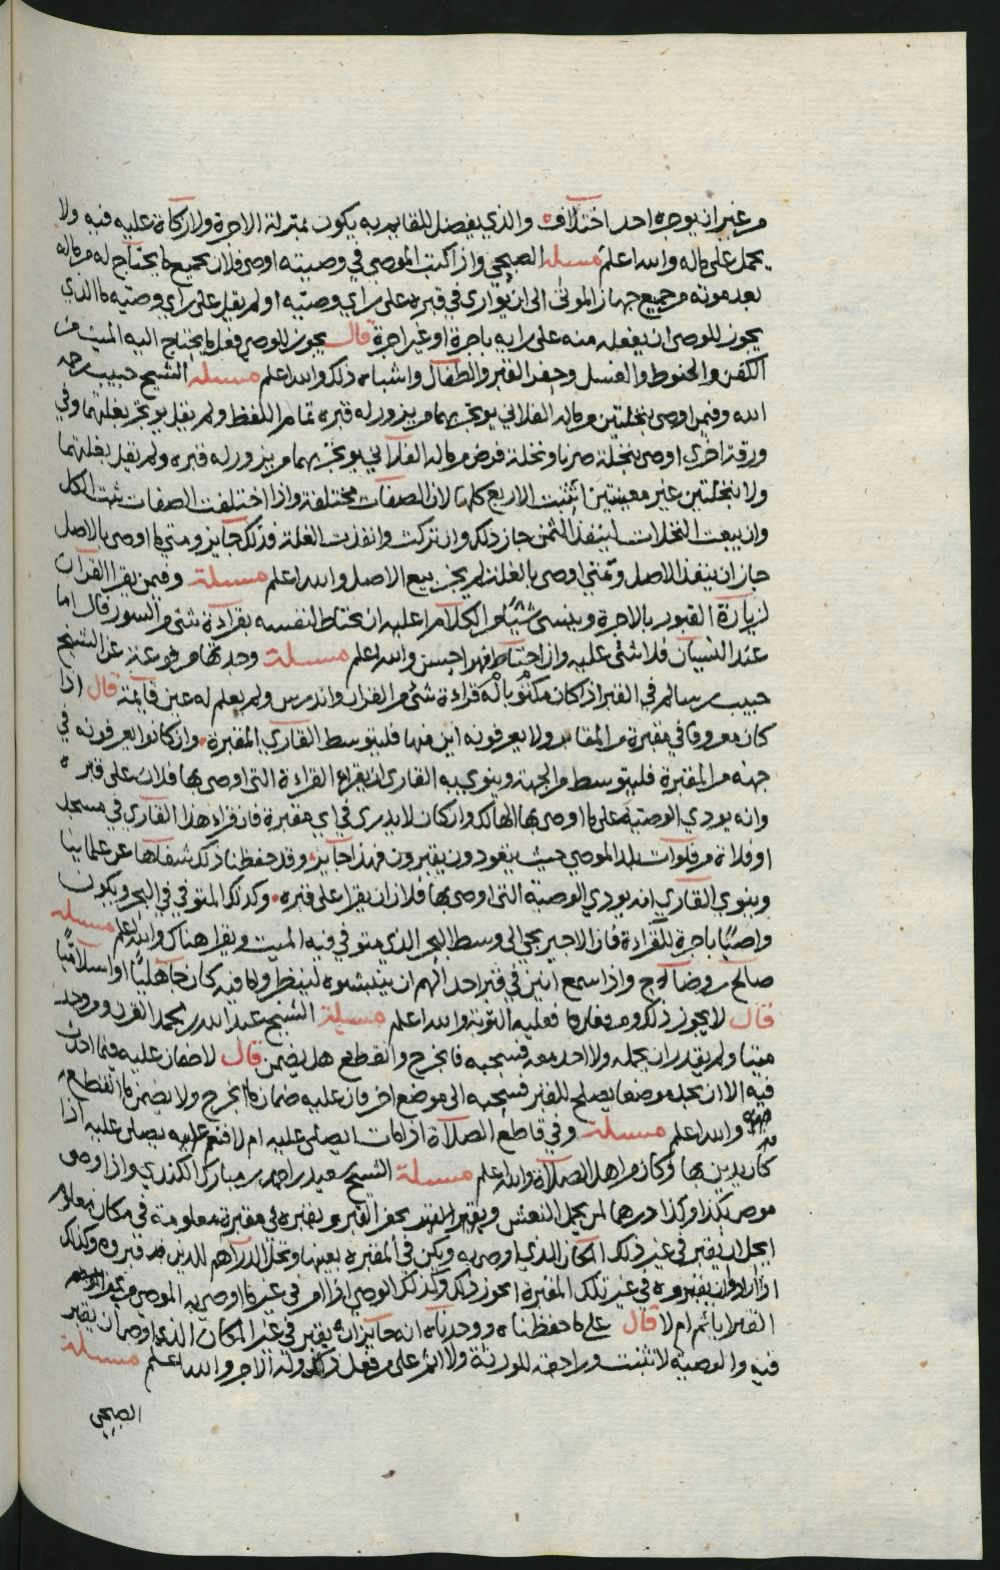 من غير ان يوجره احد اختلاف والذي يفضل للقابر به يكون بمنزلة الاجرة ولا زكاة عليه فيه ولا
يحمل على ماله والله اعلم مسئلة الصبحي واذا كتب الموصي في وصيته اوصى فلان بجميع ما يحتاج له من ماله
بعد موته من جميع جهاز الموتى الى ان يوارى في قبره على راي وصيه او لم يقل على راي وصيه ما الذي
يجوز للوصي ان يفعله منه على رايه باجرة او غير اجرة قال يجوز للوصي فعل ما يحتاج اليه الميت من
الكفن والحنوط والغسل وحفر القبر والطفال واشباه ذلك والله اعلم مسئلة الشيخ حبيب رحمه
الله وفيمن اوصى بنخلتين من ماله الفلاني يوتجر بهما من يزور له قبره تمام اللفظ ولم يقل يوتجر بغلتهما وفي
ورقة اخرى اوصى بنخلة صرنا ونخلة فرض من ماله الفلاني يوتجر بهما من يزور له قبره ولم يقل بغلتهما
ولا بنخلتين غير معينتين اتثبت الاربع كلها لان الصفات مختلفة واذا اختلفت الصفات ثبت الكل
وان بيعت النخلات لينفذ الثمن جاز ذلك وان تركت وانفذت الغلة فذلك جايز ومتى ما اوصى بالاصل
جاز ان ينفذ الاصل ومتى اوصى بالغلة لم يجز بيع الاصل والله اعلم مسئلة وفيمن يقرا القران
لزيارة القبور بالاجرة وينسى شيئا من الكلام اعليه ان يحتاط لنفسه بقراءة شئ من السور قال اما
عند النسيان فلا شئ عليه وان احتاط فهو احسن والله اعلم مسئلة وجدتها مرفوعة عن الشيخ
حبيب بن سالم في القبر اذا كان مكتوبا له قراءة شئ من القران واندرس ولم يعلم له عين قايمة قال اذا
كان معروفا في مقبرة من المقابر ولا يعرفونه اين منها فليتوسط القاري المقبرة وان كانوا يعرفونه في
جهة من المقبرة فليتوسط من الجهة وينوي به القاري ان يقراء القراءة التي اوصى بها فلان على قبره
وانه يودي الوصية على ما اوصى بها الهالك وان كان لا يدرى في اي مقبرة فان قراء هذا القاري في مسجد
او فلاة من فلوات بلد الموصي حيث يتعودون يقبرون فهذا جايز وقد حفظنا ذلك شفاها عن علماينا
وينوي القاري انه يودي الوصية التي اوصى بها فلان ان يقرا على قبره وكذلك المتوفي في البحر ويكون
واصيا باجرة للقراءة فان الاجير يجي الى وسط البحر الذي متوفي فيه الميت ويقرا هناك والله اعلم مسئلة
صالح بن وضاح واذا سمع انين في قبر احد الهم ان ينبشوه لينظروا ما فيه كان جاهليا او اسلاميا
قال لا يجوز ذلك ومن فعل ما فعليه التوبة والله اعلم مسئلة الشيخ عبدالله بن محمد القرن ومن وجد
ميتا ولم يقدر ان يحمله ولا احد معه فسحبه فانجرح وانقطع هل يضمن قال لا ضمان عليه فيما احدث
فيه الا ان يجد موضعا يصلح للقبر فسحبه الى موضع اخر فان عليه ضمان ما انجرح ولا يضمن ما انقطع
والله اعلم مسئلة وفي قاطع الصلاة اذا مات ايصلى عليه ام لا افتنا عليه يصلى عليه اذا
كان يدين بها وكان من اهل الصلاة والله اعلم مسئلة الشيخ سعيد بن احمد بن مبارك الكندي واذا اوصى
موص بكذا وكذا درهما لمن يحمل النعش ويقبر الميت يحفر القبر ويقبره في مقبرة معلومة في مكان معلوم
ايحل ان يقبر في غير ذلك المكان الذي اوصى به ويكن في المقبرة بعينها وتحل الدراهم للذين قد قبروه وكذلك
اذا ارادوا ان يقبروه في غير تلك المقبرة ايجوز ذلك وكذلك الوصي اذا امر في غير ما اوصى به الموصي
القبر اياثم ام لا قال على ما حفظناه ووجدناه انه جايز ان يقبر في غير المكان الذي اوصى ان يقبر
فيه والوصية لا تثبت وراجعة للورثة ولا اثم على من فعل ذلك وله الاجر والله اعلم مسئلة
الصبحي